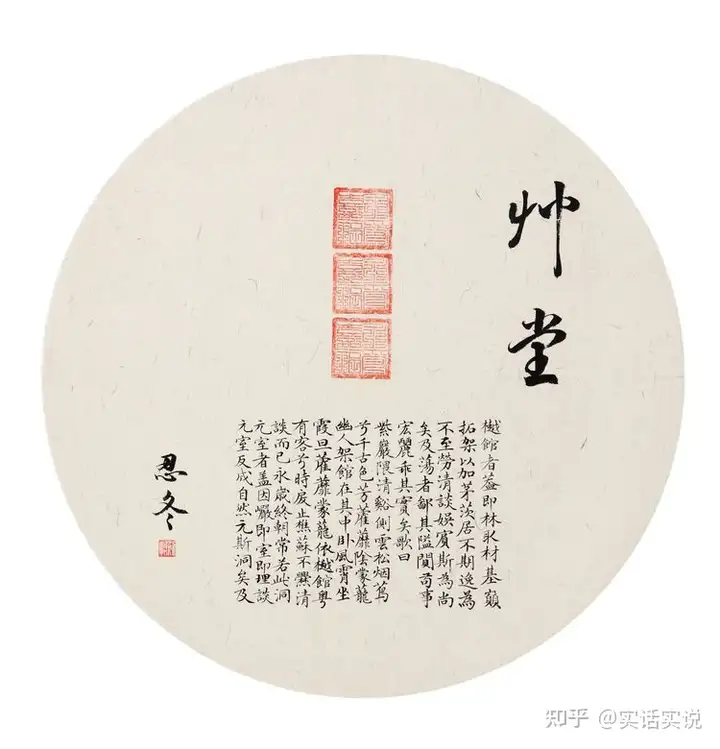 艸堂
樾館者葢即林取材基巔
拓架以加茅茨居不期逸為
不至勞清談娛賓斯為尚
矣及蕩者鄙其隘闃苟事
宏麗乖其實矣歌曰
紫巖隈清谿側雲松烟蔦
兮千古色芳藋蘼陰蒙蘢
幽人架館在其中卧風霄坐
霞旦藋蘼蒙蘢依樾館粤
有客兮時戾止樵蘇不爨清
談而已永歲終朝常若此洞
元室者盖因巖即室即理談
元室反成自然元斯洞矣及
忍冬
知乎 @实话实说